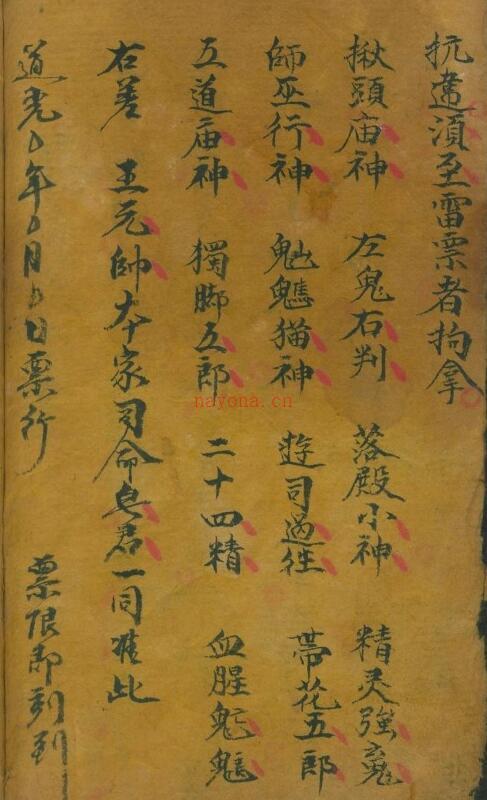 抗違須至雷票者拘拿
揪頭庙神 左鬼右判 落殿小神 精灵強
師巫行神 猫神 遊司過往 帶花五郎
五道庙神 獨脚五郎 二十四精 血腥
右差 王元帥 本家司命皂君一同准此
道光 年 月 日票行 票限即到
nayona.cn